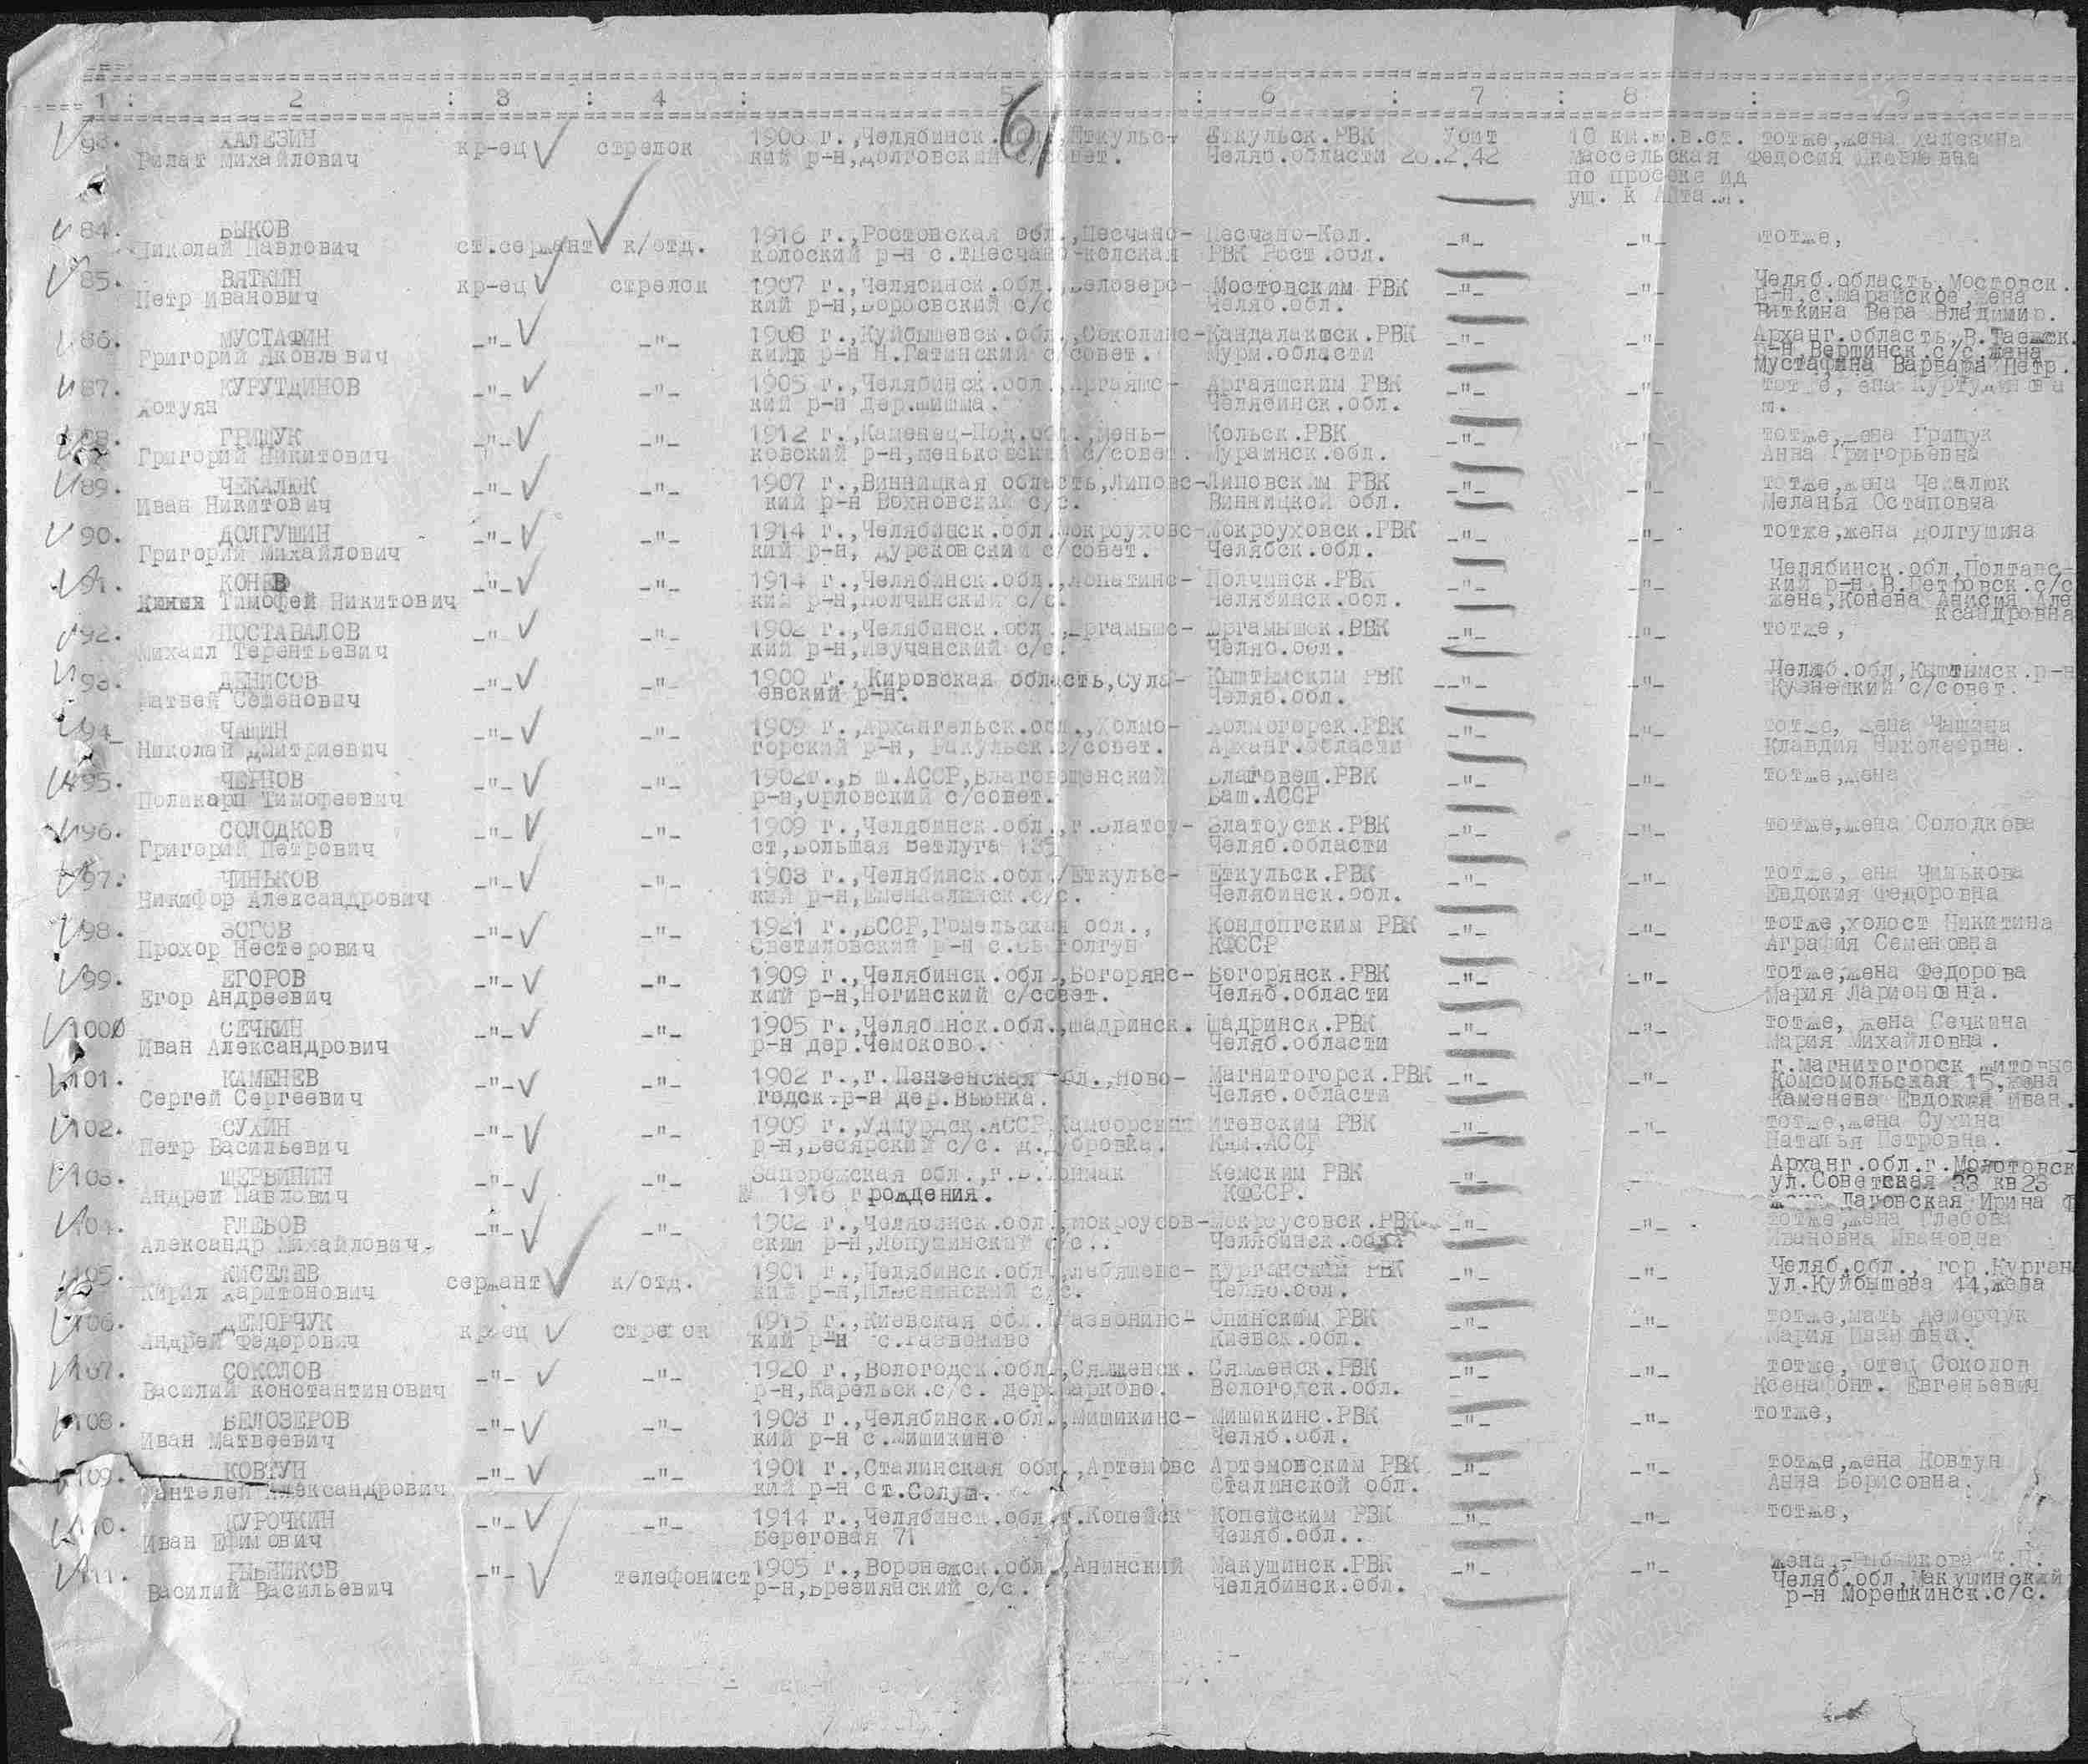 1 : 2 : 3 : 4 : 5 : 6 : 7 : 8 : 9
61
ХАЛЕЗИН кр-ец стрелок 1906 г.,Челябинск. Еткульс- Еткульск.РВК Убит 10 км.ю.в.ст. тотже,жена Халезина
Михайлович кий р-н,Долговский с/совет. Челяб.области 20.2.42 Массельская Федосия Яковлевна
по просеке ид
ущ. к
84. БЫКОВ ст.сержант к/отд. 1916 г.,Ростовская обл.,Песчано- Песчано-Кол. -"- -"- тотже,
Николай Павлович колоский р-н РВК Рост.обл.
85. ВЯТКИН кр-ец стрелок 1907 г.,Челябинск.обл.,Белозерс- Мостовским РВК -"- -"- Челяб.область,Мостовск.
Петр Иванович кий р-н,Боровский с/с Челяб.обл. р-н,с.Марайское,жена
Вяткина Вера Владимир.
86. МУСТАФИН -"- -"- 1908 г.,Куйбышевск.обл.,Соколинс- Кандалакшск.РВК -"- -"- Арханг.область,В.Таежск.
Григорий Яковлевич р-н Н.Гатинский с/совет. Мурм.области р-н,Вершинск.с/с,жена
Мустафина Варвара Петр.
87. КУРУТДИНОВ -"- -"- 1905 г.,Челябинск.обл.,Аргаяшс- Аргаяшским РВК -"- -"-
Хотуян кий р-н дер.Мишма. Челябинск.обл.
88. ГРИЩУК -"- -"- 1912 г.,Каменец-Под.обл.,Мень- Кольск.РВК -"- -"- тотже,жена Грищук
Григорий Никитович ковский р-н,меньковский с/совет. Мурминск.обл. Анна Григорьевна
89. ЧЕКАЛЮК -"- -"- 1907 г.,Винницкая область,Липовс- Липовским РВК -"- -"- тотже,жена Чекалюк
Иван Никитович кий р-н Вохновский с/с. Винницкой обл. Меланья Остаповна
90. ДОЛГУШИН -"- -"- 1914 г.,Челябинск.обл.Мокроуховс- Мокроуховск.РВК -"- -"- тотже,жена Долгушина
Григорий Михайлович кий р-н, Дурсковский с/совет. Челябск.обл.
91. КОНЕВ -"- -"- 1914 г.,Челябинск.обл.,Лопатинс- Полчинск.РВК -"- -"- Челябинск.обл,Полтавс-
Тимофей Никитович кий р-н,Волчинский с/с. Челябинск.обл. кий р-н,В.Петровск.с/с
жена,Конева Анисия Але
ксандровна
92. ПОСТАВАЛОВ -"- -"- 1902 г.,Челябинск.обл.,Юргамышс- Юргамышск.РВК -"- -"- тотже,
Михаил Терентьевич кий р-н,Изучанский с/с. Челяб.обл.
93. ДЕНИСОВ -"- -"- 1900 г.,Кировская область,Суна- Кыштымским РВК -"- -"- Челяб.обл,Кыштымск.р-н
Матвей Семенович евский р-н. Челяб.обл. Кузнецкий с/совет.
94 ЧАЩИН -"- -"- 1909 г.,Архангельск.обл.,Холмо- Холмогорск.РВК -"- -"- тотже, жена Чащина
Николай Дмитриевич горский р-н, Ракульск.с/совет. Арханг.области Клавдия Николаевна.
95. ЧЕРНОВ -"- -"- 1902г.,Б ш.АССР,Благовещенский Благовещ.РВК -"- -"- тотже,жена
Поликарп Тимофеевич р-н,Орловский с/совет. Баш.АССР
96. СОЛОДКОВ -"- -"- 1909 г.,Челябинск.обл.,г.Златоу- Златоустк.РВК -"- -"- тотже,жена Солодкова
Григорий Петрович ст,Большая Ветлуга 135 Челяб.области
97. ЧИНЬКОВ -"- -"- 1908 г.,Челябинск.обл./Еткульс- Еткульск.РВК -"- -"- тотже, ена Чинькова
Никифор Александрович кий р-н, Челябинск.обл. Евдокия Федоровна
98. ЗОГОВ -"- -"- 1921 г.,БССР,Гомельская обл., Кондопгским РВК -"- -"- тотже,холост Никитина
Прохор Нестерович Светиловский р-н КФССР Аграфия Семеновна
99. ЕГОРОВ -"- -"- 1909 г.,Челябинск.обл.,Богорянс- Богорянск.РВК -"- -"- тотже,жена Федорова
Егор Андреевич кий р-н,Ногинский с/совет. Челяб.области Мария Ларионовна.
100 СЕЧКИН -"- -"- 1905 г.,Челябинск.обл.,Шадринск. Шадринск.РВК -"- -"- тотже, жена Сечкина
Иван Александрович р-н дер.Чемоково. Челяб.области Мария Михайловна.
101. КАМЕНЕВ -"- -"- 1902 г.,г.Пензенская обл.,Ново- Магнитогорск.РВК -"- -"- г.Магнитогорск,щитовые
Сергей Сергеевич годск.р-н дер.Вьюнка. Челяб.области Комсомольская 15,жена
Каменева Евдокия Иван.
102. СУХИН -"- -"- 1909 г.,Удмурдск.АССР,Камборский Итевским РВК -"- -"- тотже,жена Сухина
Петр Васильевич р-н,Бесярский с/с. д.Дубровка. АССР Наталья Петровна.
103. ЩЕРБИНИН -"- -"- Запорожская обл.,г.Б.Токмак Кемским РВК -"- Арханг.обл.г.Молотовск
Андрей Павлович 1916 г рождения. КФССР. ул.Советская 33 кв 23
Даровская Ирина Ф
104. ГЛЕБОВ -"- -"- 1902 г.,Челябинск.обл.,Мокроусов- Мокроусовск.РВК -"- -"- тотже,жена Глебова
Александр Михайлович. ский р-н,Лопушинский с/с.. Челябинск.обл. Ивановна Ивановна
105. КИСЕЛЕВ сержант к/отд. 1901 г.,Челябинск.обл.,лебяжевс- Курганский РВК -"- -"- Челяб.обл., гор.Курган
Кирил Харитонович кий р-н,Плеснинский с/с. Челяб.обл. ул.Куйбышева 44,жена
106. ДЕМОРЧУК кр-ец стрелок 1915 г.,Киевская обл. Сквирским РВК -"- -"- тотже,мать Деморчук
Андрей Федорович кий р-н Киевск.обл. Мария Ивановна.
107. СОКОЛОВ -"- -"- 1920 г.,Вологодск.обл.,Сямженск. Сямженск.РВК -"- -"- тотже, отец Соколов
Василий Константинович р-н,Карельск.с/с. дер.Марково. Вологодск.обл. Ксенафонт. Евгеньевич
108. БЕЛОЗЕРОВ -"- -"- 1903 г.,Челябинск.обл.,Мишикинс- Мишикинс.РВК -"- -"- тотже,
Иван Матвеевич кий р-н с.Мишикино Челяб.обл.
109. КОВТУН -"- -"- 1901 г.,Сталинская обл.,Артемовс Артемовским РВК -"- -"- тотже,жена Ковтун
Пантелей Александрович кий р-н ст.Солуш. Сталинской обл. Анна Борисовна.
110. КУРОЧКИН -"- -"- 1914 г.,Челябинск.обл.г.Копейск Копейским РВК -"- -"- тотже,
Иван Ефимович Береговая 71 Челяб.обл..
111. РЫБНИКОВ -"- телефонист 1905 г.,Воронежск.обл.,Анинский Макушинск.РВК -"- -"- жена,-Рыбникова
Василий Васильевич р-н,Брезиянский с/с. Челябинск.обл. Челяб.обл,Макушинский
р-н Морешкинск.с/с.